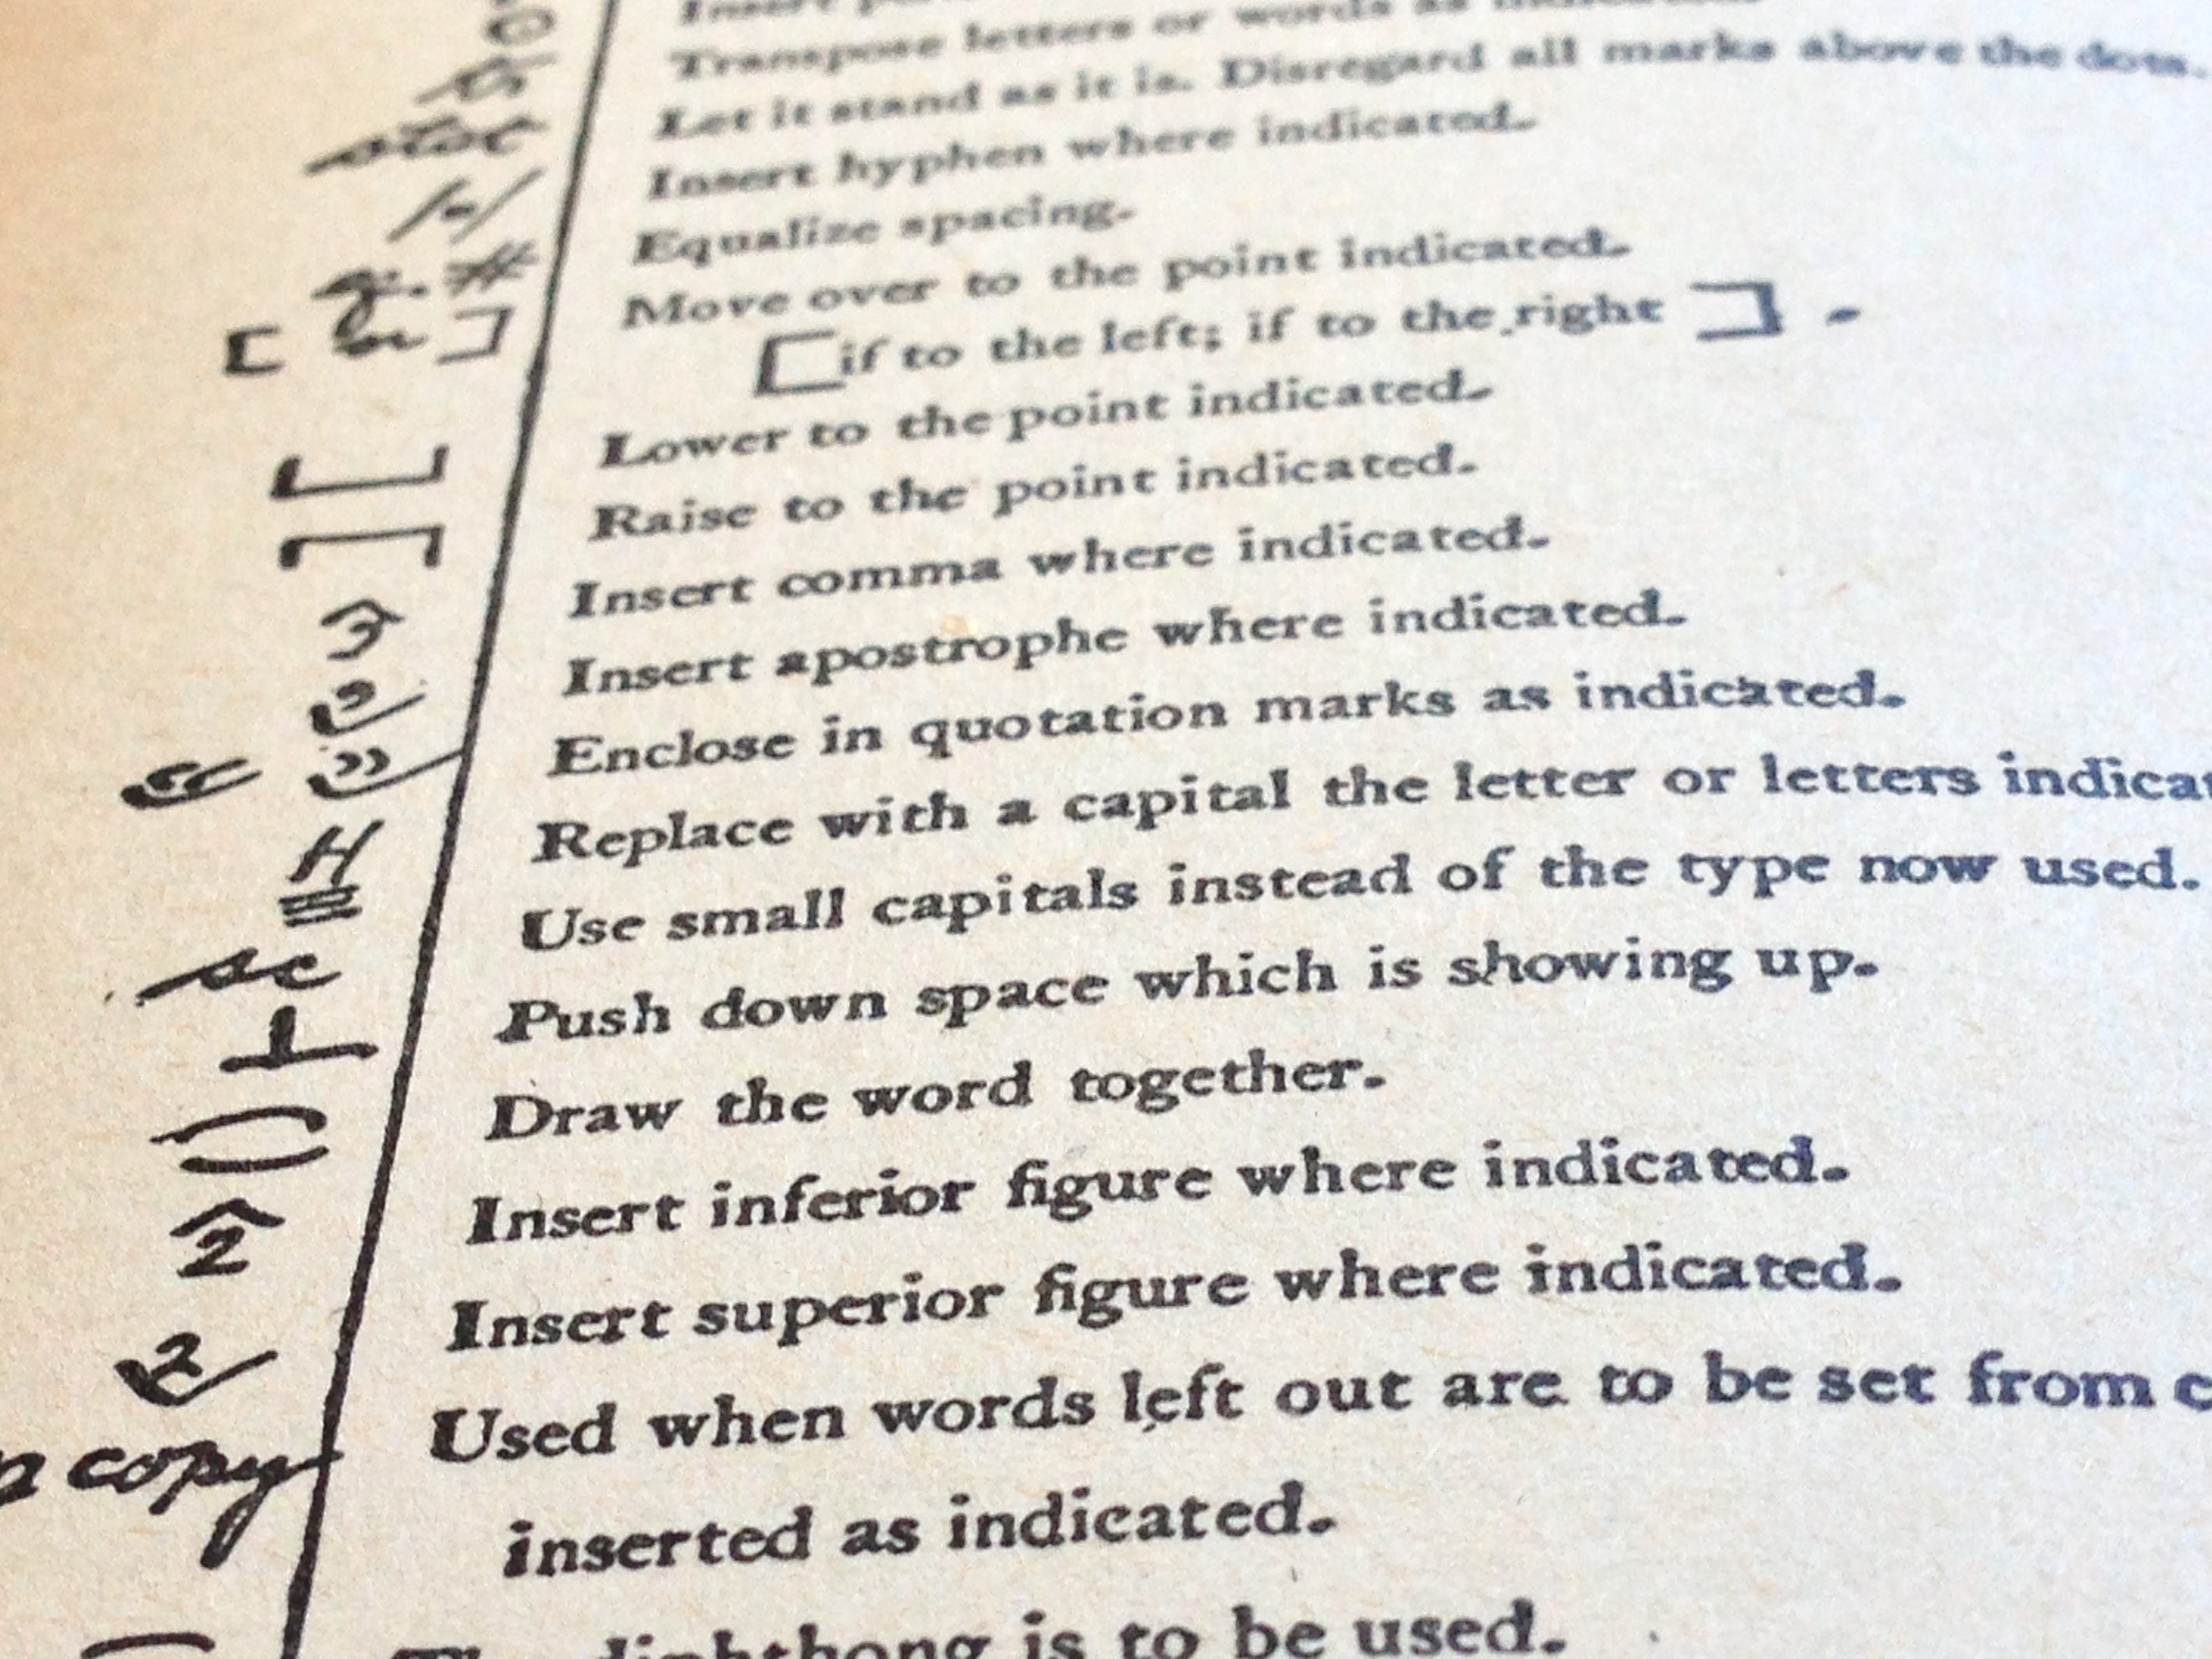 Insert
Transpose letters or words as
tr
Let it stand as it is. Disregard all marks above the dots.
stet
Insert hyphen where indicated.
/=/
Equalize spacing.
eq. #
Move over to the point indicated.
[ or ]
[ if to the left; if to the right ] .
Lower to the point indicated.
Raise to the point indicated.
Insert comma where indicated.
,
Insert apostrophe where indicated.
’
Enclose in quotation marks as indicated.
“ ”
Replace with a capital the letter or letters
H
Use small capitals instead of the type now used.
sc
Push down space which is showing up.
⊥
Draw the word together.
Insert inferior figure where indicated.
2
Insert superior figure where indicated.
2
Used when words left out are to be set from
copy
inserted as indicated.
diphthong is to be used.